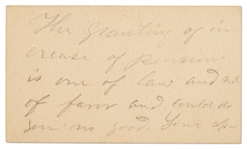 The granting of in
crease of Pension
is one of law and not
of favor and could do
you no good. Your ap-